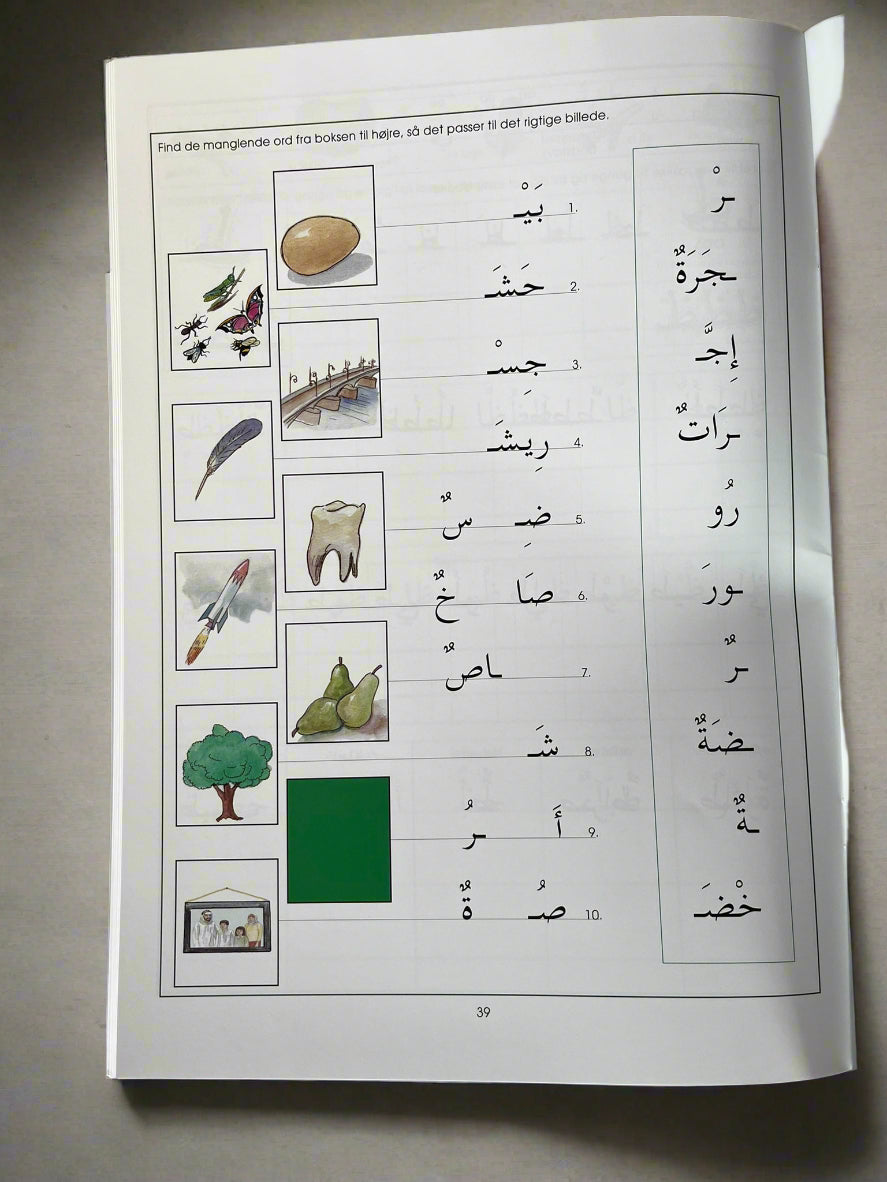 Find de manglende ord fra boksen til højre, så det passer til det rigtige billede.
1. بَيْـ
2. حَشَـ
3. جِسْـ
4. رِيشَـ
5. ضِـ سٌ
6. صَا خٌ
7. ـاصٌ
8. شَـ
9. أَ ـرُ
10. صُـ ةٌ
ـرْ
ـجَرَةٌ
إِجَّـ
ـرَاتٌ
رُو
ـورَ
ـرٌ
ـضَةٌ
ـةٌ
خْضَـ
39